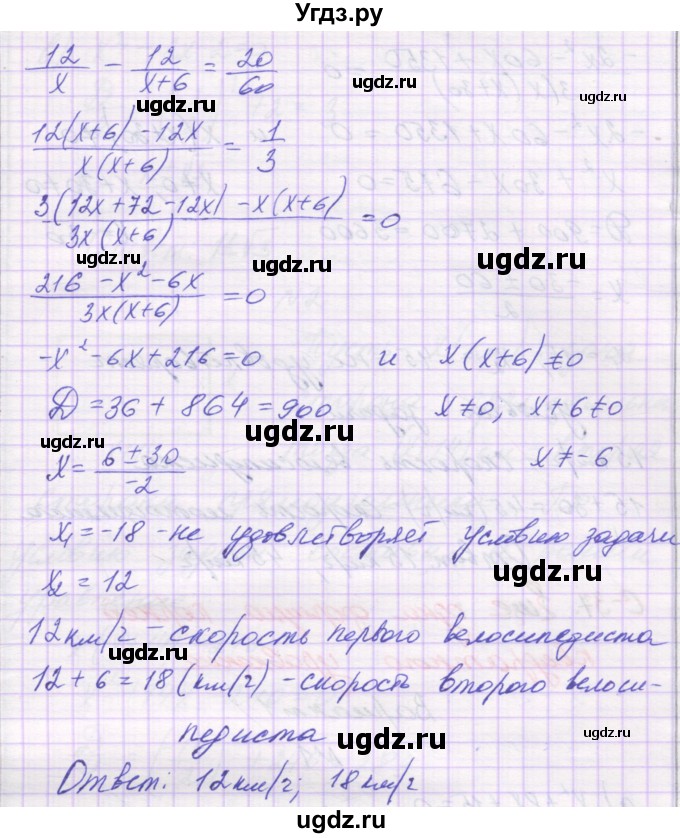 Угдз.ру
12/x - 12/(x+6) = 20/60
ugdz.ru
(12(x+6) - 12x)/(x(x+6)) = 1/3
ugdz.ru
(3(12x+72-12x) - x(x+6))/(3x(x+6)) = 0
ugdz.ru
ugdz.ru
(216 - x² - 6x)/(3x(x+6)) = 0
ugdz.ru
-x² - 6x + 216 = 0 и x(x+6) ≠ 0
ugdz.ru
Д = 36 + 864 = 900 x ≠ 0; x+6 ≠ 0
ugdz.ru
ugdz.ru
x = (6 ± 30)/(-2) x ≠ -6
x₁ = -18 - не удовлетворяет условию задачи
ugdz.ru
ugdz.ru
x₂ = 12
ugdz.ru
12км/ч - скорость первого велосипедиста
ugdz.ru
12 + 6 = 18 (км/ч) - скорость второго велоси-
педиста
ugdz.ru
ugdz.ru
Ответ: 12км/ч; 18км/ч
ugdz.ru
ugdz.ru